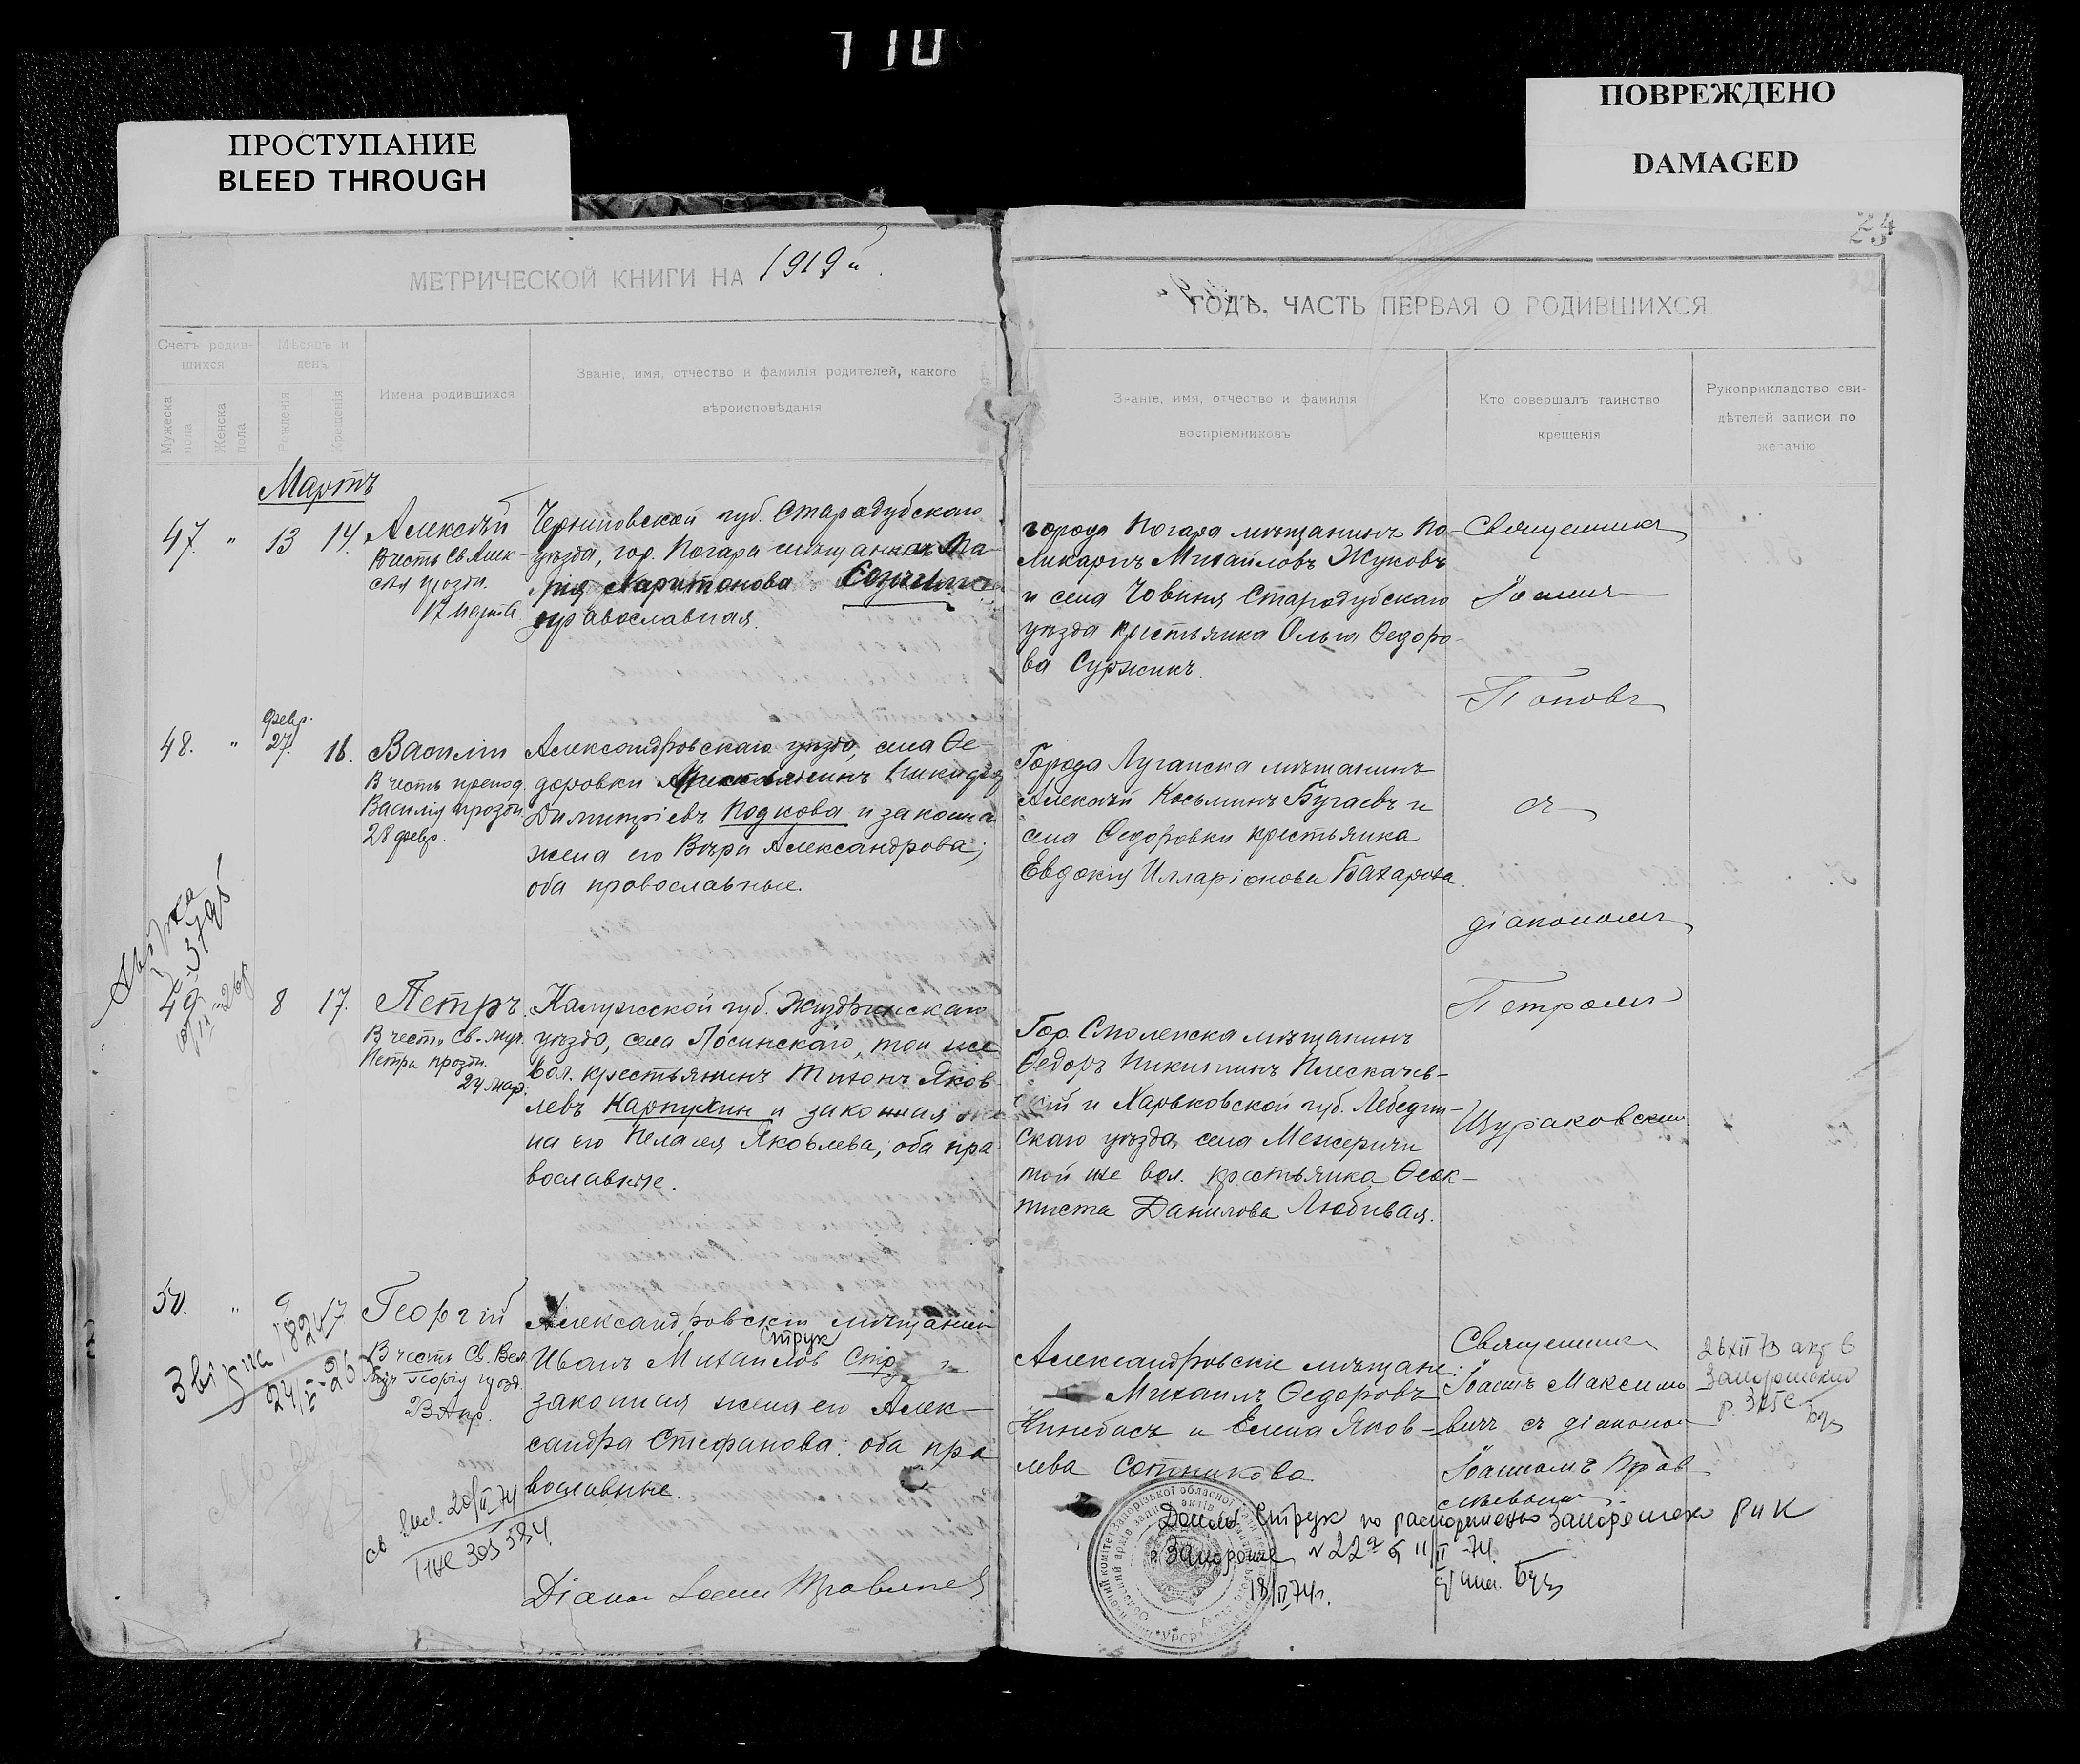 110
ПРОСТУПАНИЕ
BLEED THROUGH
ПОВРЕЖДЕНО
DAMAGED
24
МЕТРИЧЕСКОЙ КНИГИ НА 1919 й
ГОДЪ. ЧАСТЬ ПЕРВАЯ О РОДИВШИХСЯ
Счетъ родив-
шихся
Мужеска пола
Женска пола
Мѣсяцъ и
день
Рожденія
Крещенія
Имена родившихся
Званіе, имя, отчество и фамилія родителей, какого
вѣроисповѣданія
Званіе, имя, отчество и фамилія
воспріемниковъ
Кто совершалъ таинство
крещенія
Рукоприкладство сви-
дѣтелей записи по
желанію
Мартъ
47. " 13 14. Алексѣй
В честь Св. Алек-
сѣя празн.
17 марта
Черниговской губ. Стародубскаго
уѣзда, гор. Погара мѣщанка Ма-
рія Харитонова
православная.
города Погара мѣщанинъ По-
ликарпъ Михайловъ Жуковъ
и села Човпня Стародубскаго
уѣзда крестьянка Ольга Ѳедоро-
ва Суржикъ.
Священникъ
Іоаннъ
Поповъ
48. " февр. 27. 16. Василій
В честь препод.
Василія празн.
28 февр.
Александровскаго уѣзда, села Ѳе-
доровки крестьянинъ Никифоръ
Димитріевъ Подкова и законна
жена его Вѣра Александрова;
оба православные.
Города Луганска мѣщанинъ
Алексѣй Косьминъ Бугаевъ и
села Ѳедоровки крестьянка
Евдокія Илларіонова Бахарова.
съ
діакономъ
49 8 17. Петръ.
В честь Св. муч.
Петра празн.
24 мар.
Калужской губ. Жиздринскаго
уѣзда, села Лосинскаго, той же
вол. крестьянинъ Тихонъ Яков-
левъ Карпухин и законная же
на его Пелагея Яковлева, оба пра-
вославные.
Гор. Смоленска мѣщанинъ
Ѳедоръ Никитинъ Плескачев-
скій и Харьковской губ. Лебедин-
скаго уѣзда, села Межеричи
той же вол. крестьянка Ѳеок-
тиста Данилова Любивая.
Петромъ
Щураковским.
50. " 9 17 Георгій
В честь Св. Вел.
муч. Георгія празд.
23 Апр.
Александровскій мѣщанин
Струк
Иванъ Михаилов
законная жена его Алек-
сандра Стефанова: оба пра
вославные.
Александровскіе мѣщане:
Михаилъ Ѳедоровъ
Кинебасъ и Елена Яков-
лева Сотникова.
Священник
Іоаннъ Максимо
вичъ съ діаконом
Іоанномъ
26 XII 73
Звірена 18247
св выс. 20/II 74
305584
18/II 74г.
УРСР